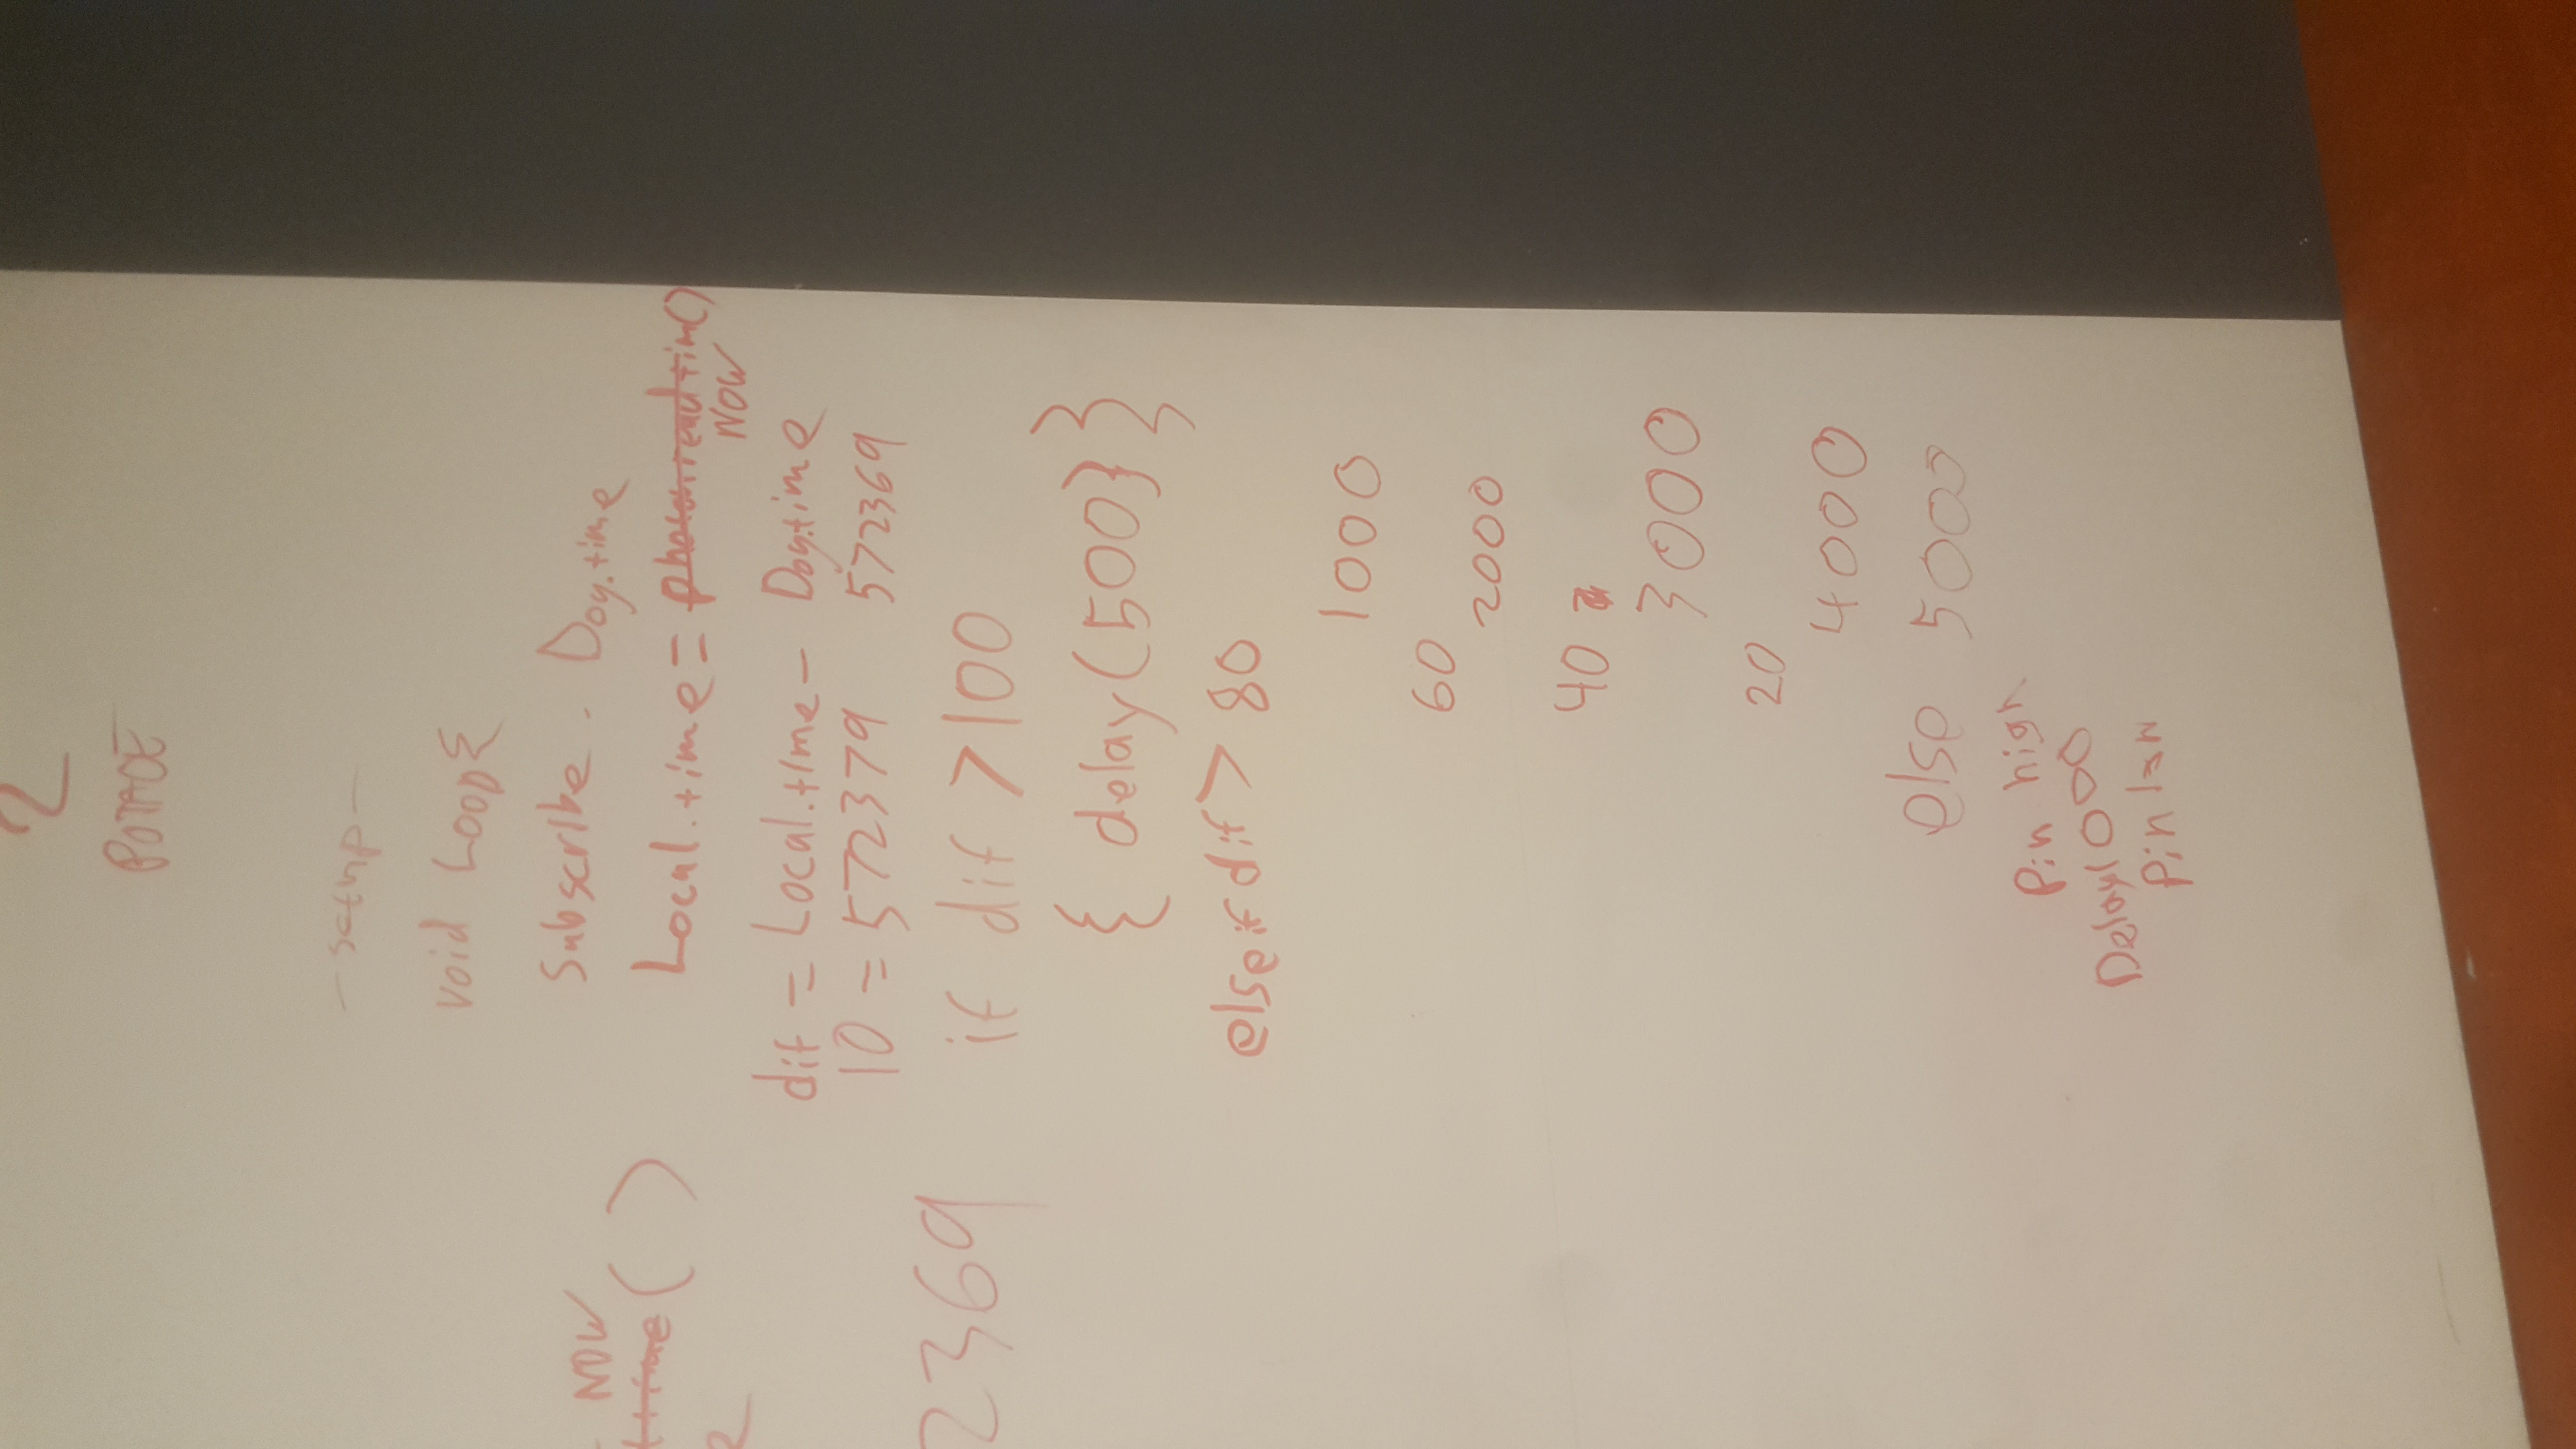 2
POTATOE
- setup -
void Loop{
Subscribe - Doy.time
NOW
time ( )
Local.time = photon.readtim()
NOW
dif = Local.time - Doy.time
10 = 572379 572369
2369
if dif > 100
{ delay(500} }
else if dif > 80
1000
60
2000
40
3000
20
4000
else 5000
Pin high
Delay1000
Pin low